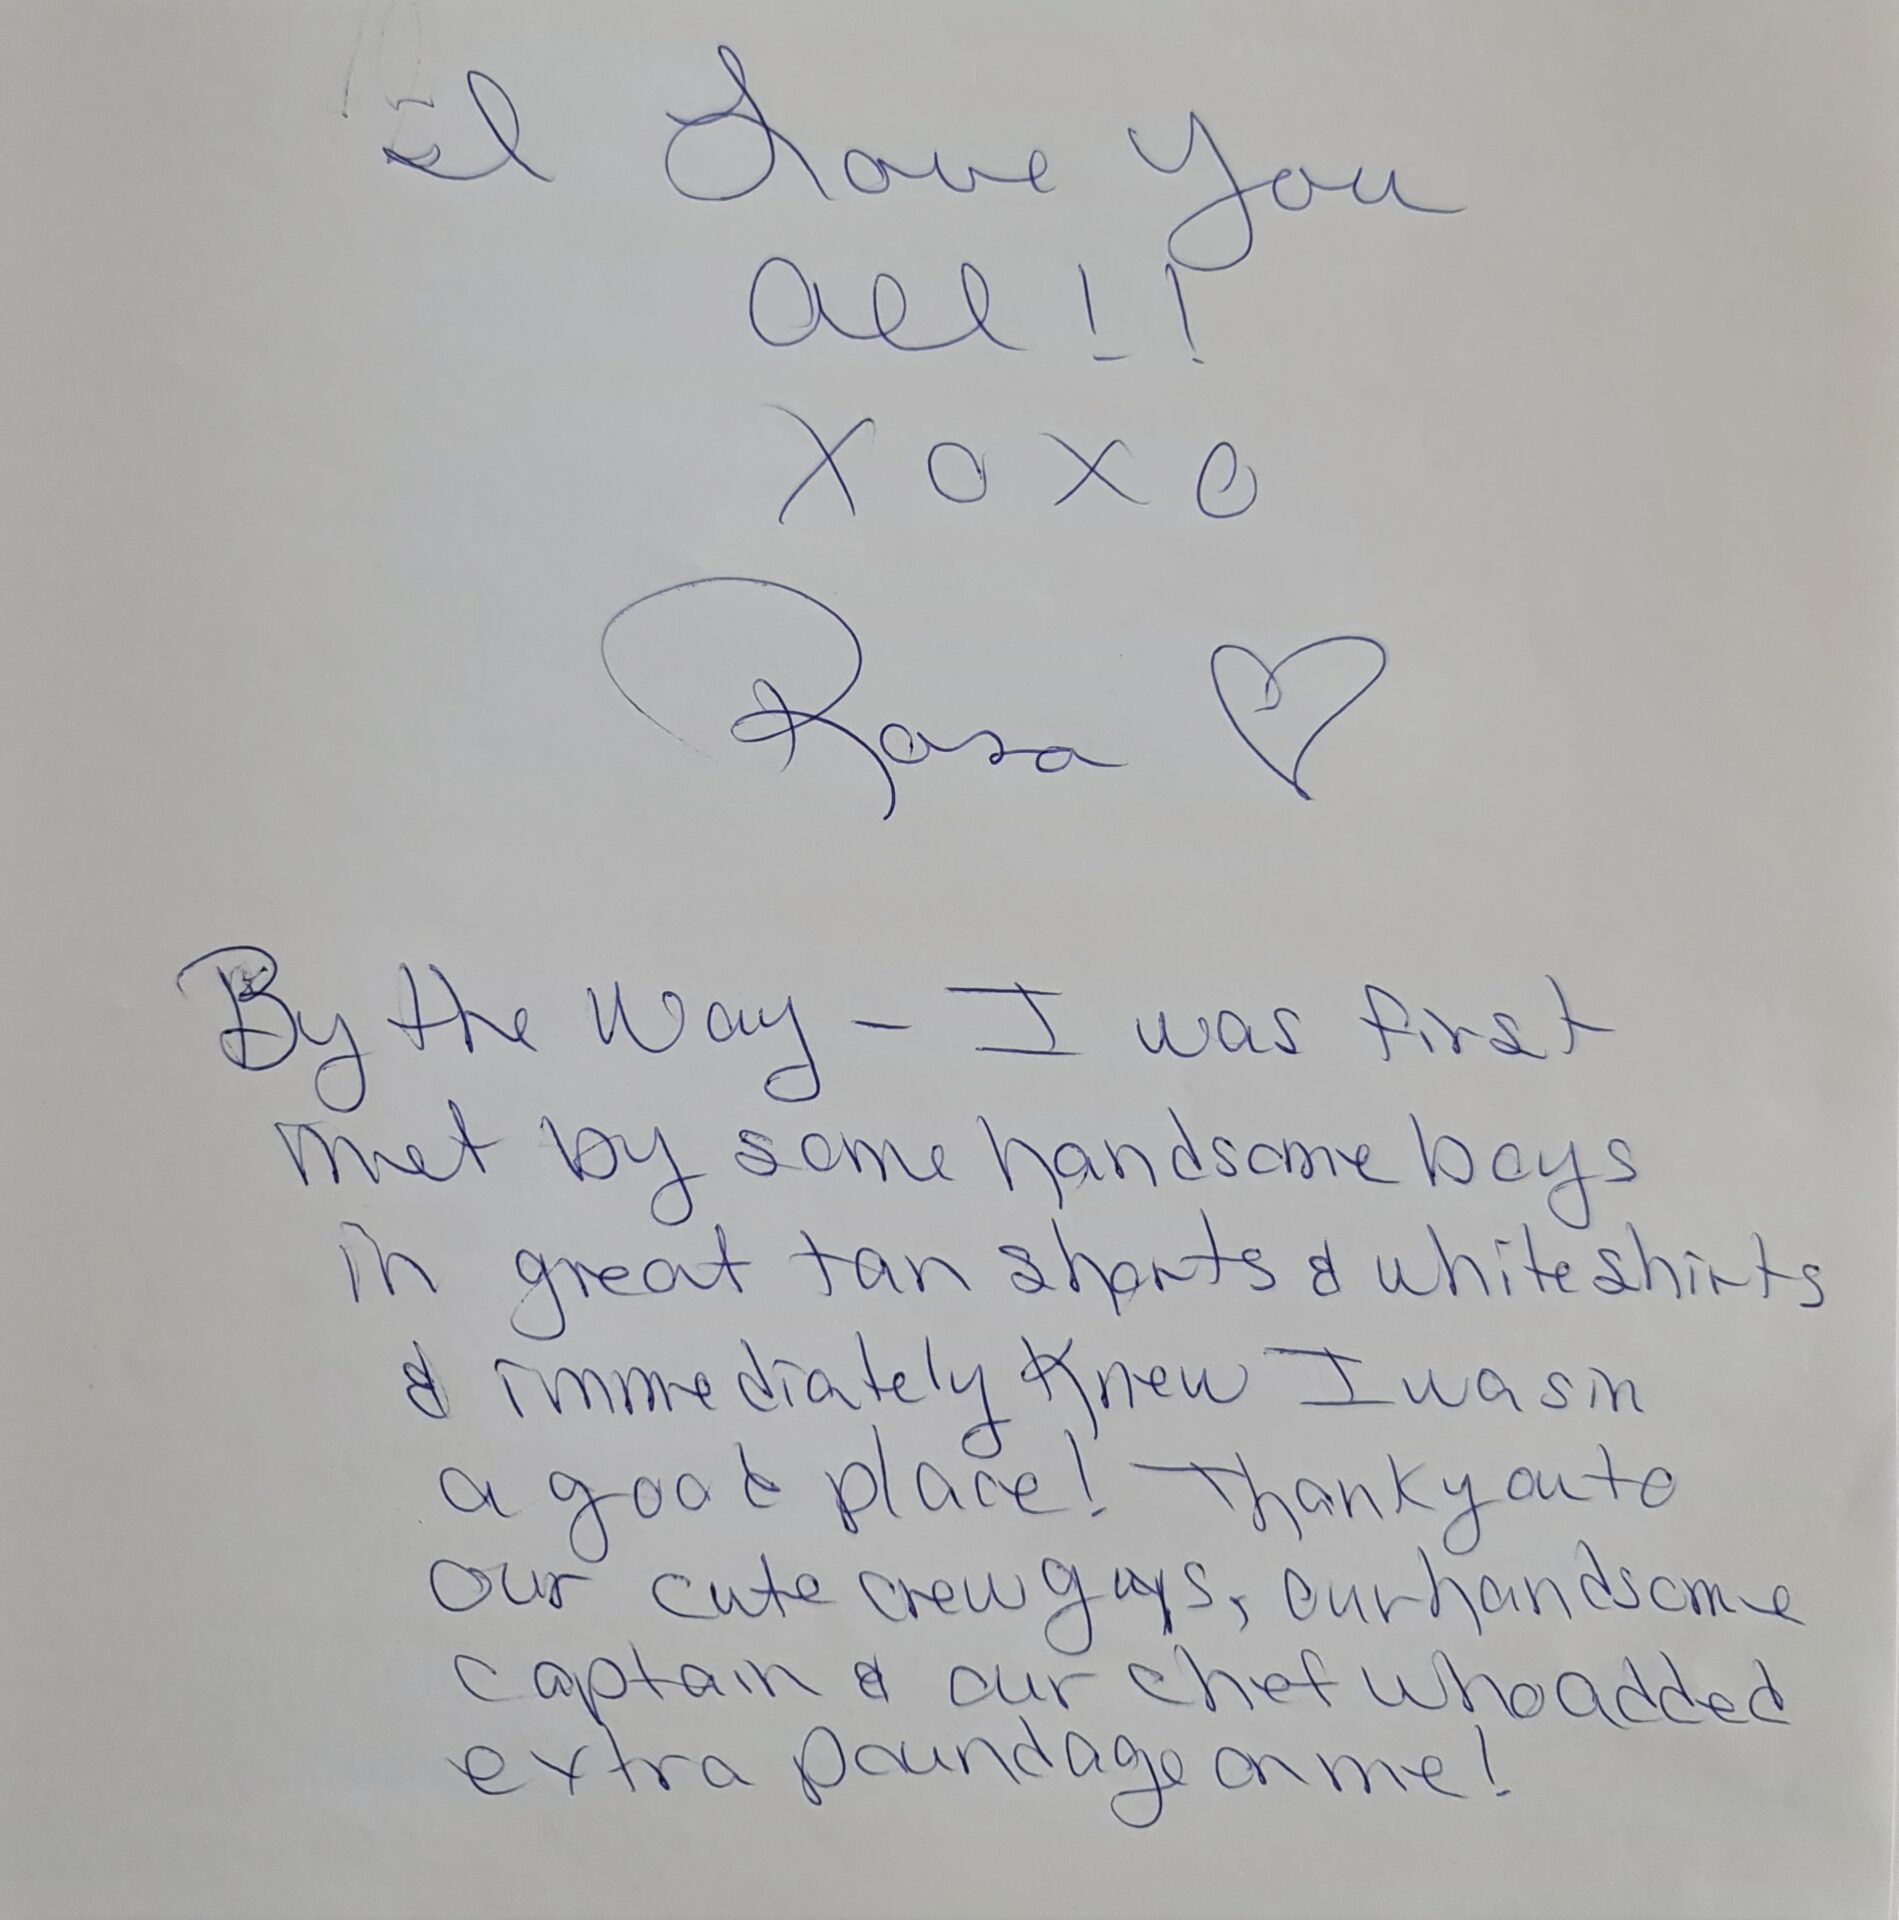 I Love You
all!!
XOXO
Rosa ♡
By the Way - I was first
met by some handsome boys
in great tan shorts & white shirts
& immediately knew I was in
a good place! Thank you to
our cute crew guys, our handsome
captain & our chef who added
extra poundage on me!